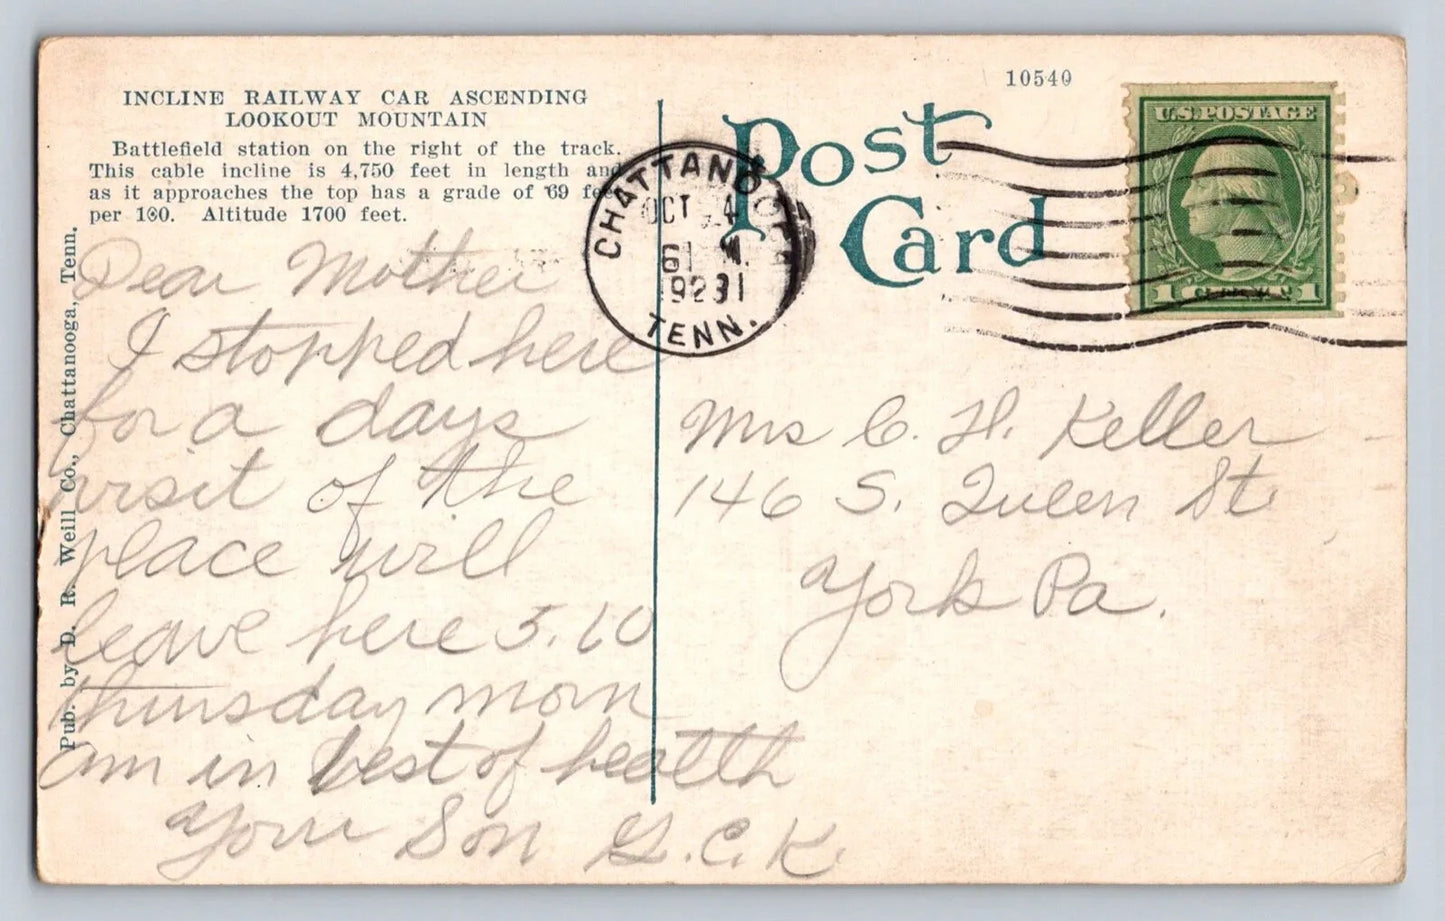 INCLINE RAILWAY CAR ASCENDING
LOOKOUT MOUNTAIN
Battlefield station on the right of the track.
This cable incline is 4,750 feet in length and
as it approaches the top has a grade of 69 feet
per 100. Altitude 1700 feet.
Pub. by D. R. Weill Co., Chattanooga, Tenn.
Dear Mother
I stopped here
for a days
visit of the
place will
leave here 5.10
thursday morn
am in best of health
Your Son G.C.K.
10540
Post
Card
CHATTANOOGA
OCT 4
TENN.
U.S. POSTAGE
1 CENT 1
Mrs C. H. Keller
146 S. Queen St.
York Pa.